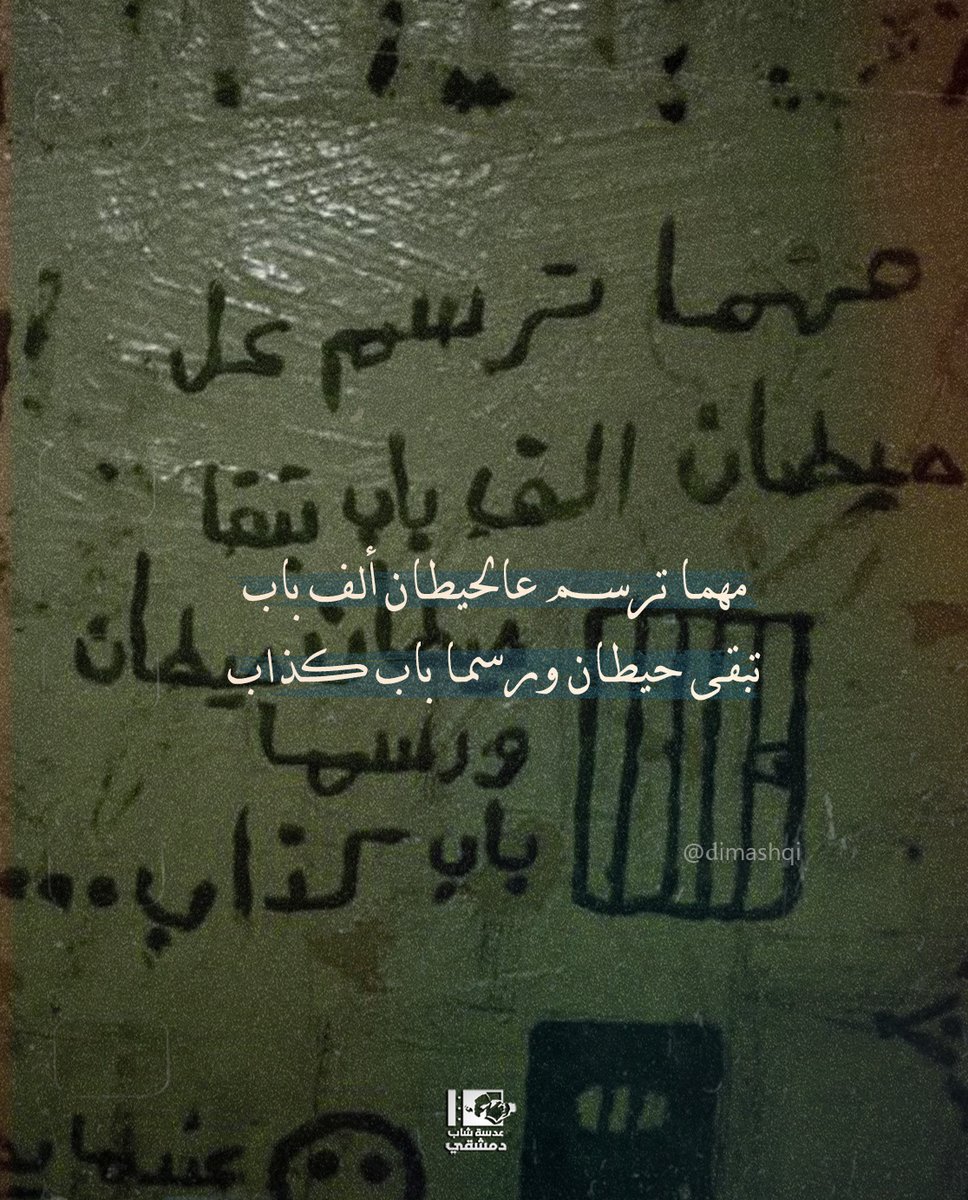 مهما ترسم عل
حيطان الف باب تبقا
حيطان حيطان
ورسما
باب كذاب...
مهما ترسم عالحيطان ألف باب
تبقى حيطان ورسما باب كذاب
@dimashqi
عدسة شاب
دمشقي